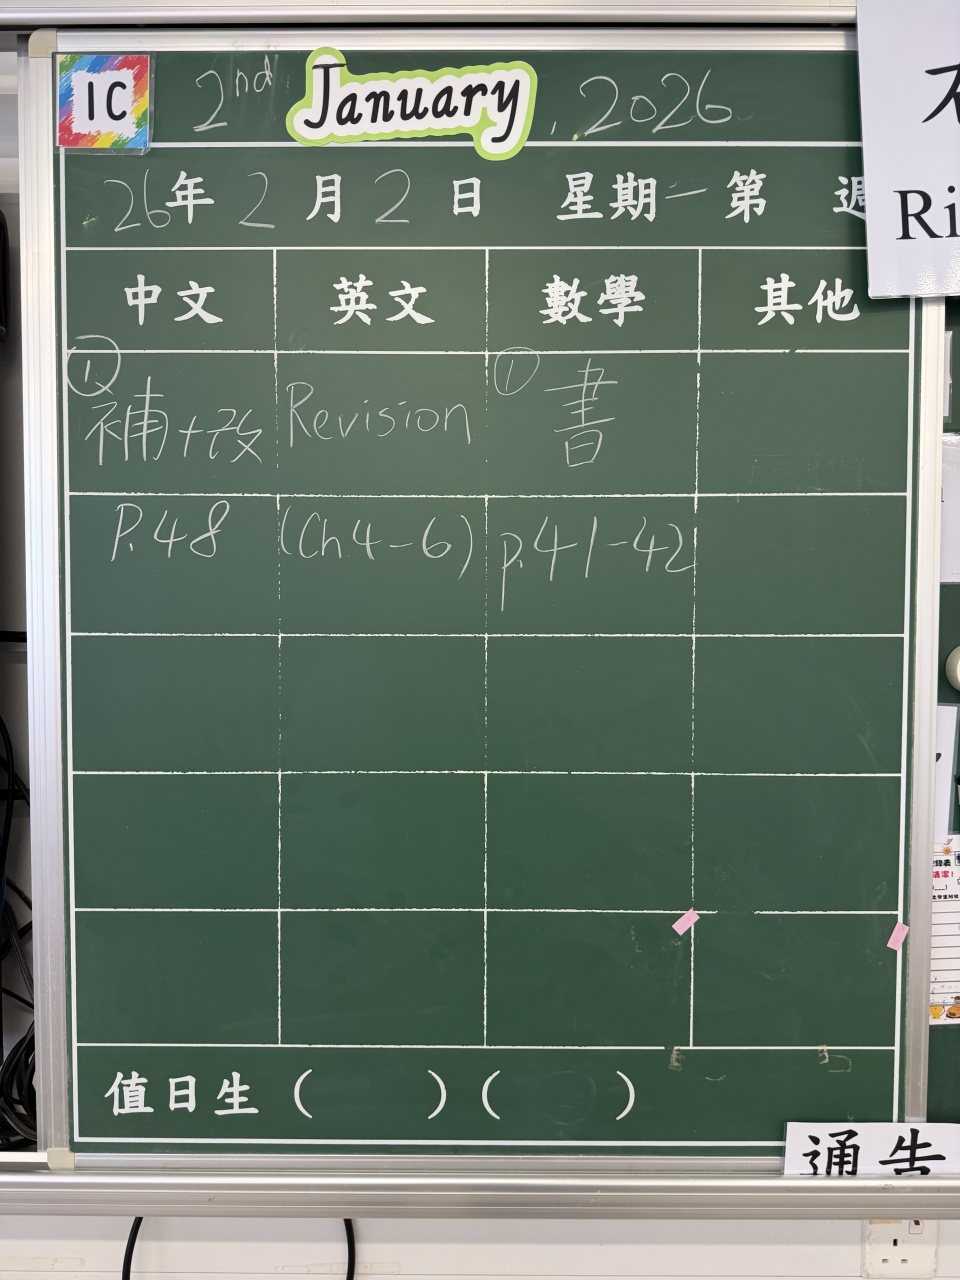 1C 2nd January, 2026
26年2月2日 星期一第 週
中文 英文 數學 其他
① 補+改 Revision ① 書
P.48 (Ch.4-6) p.41-42
值日生( )( )
Ri
通告